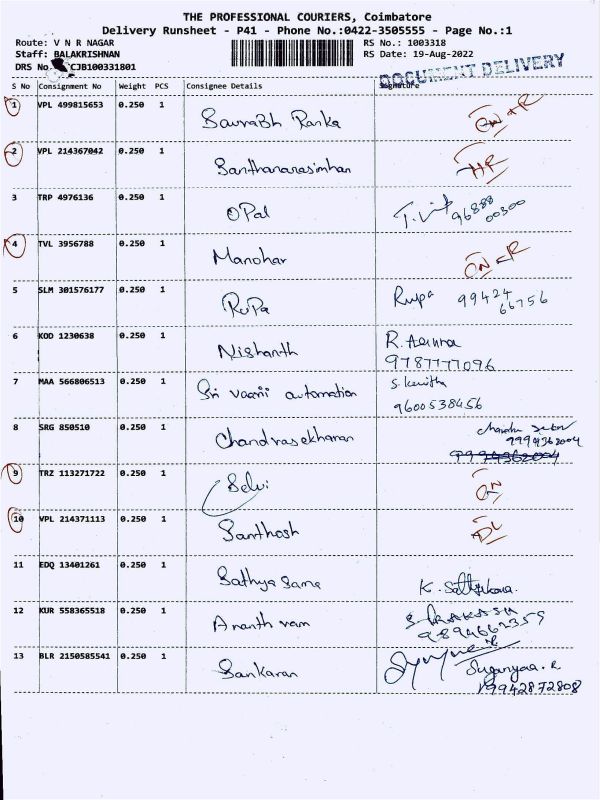 THE PROFESSIONAL COURIERS, Coimbatore
Delivery Runsheet - P41 - Phone No.:0422-3505555 - Page No.:1
Route: V N R NAGAR RS No.: 1003318
Staff: BALAKRISHNAN RS Date: 19-Aug-2022
DRS No. CJB100331801
DOCUMENT DELIVERY
S No Consignment No Weight PCS Consignee Details Signature
1 VPL 499815653 0.250 1 Saurabh Ranka
2 VPL 214367042 0.250 1 Santhanarasimhan
3 TRP 4976136 0.250 1 OPal 96888
00300
4 TVL 3956788 0.250 1 Manohar
5 SLM 301576177 0.250 1 RuPa Rupa 99424
66756
6 KOD 1230638 0.250 1 Nishanth R.
9787777096
7 MAA 566806513 0.250 1 Sri vaani automation
9600538456
8 SRG 850510 0.250 1 Chandrasekharan
9994362004
9994362004
9 TRZ 113271722 0.250 1 Selvi
10 VPL 214371113 0.250 1 Santhosh DL
11 EDQ 13401261 0.250 1 Sathya Sama K.
12 KUR 558365518 0.250 1 Ananth ram S. PRAKASH
9894662355
13 BLR 2150585541 0.250 1 Sankaran Suganyaa. R
9942872808